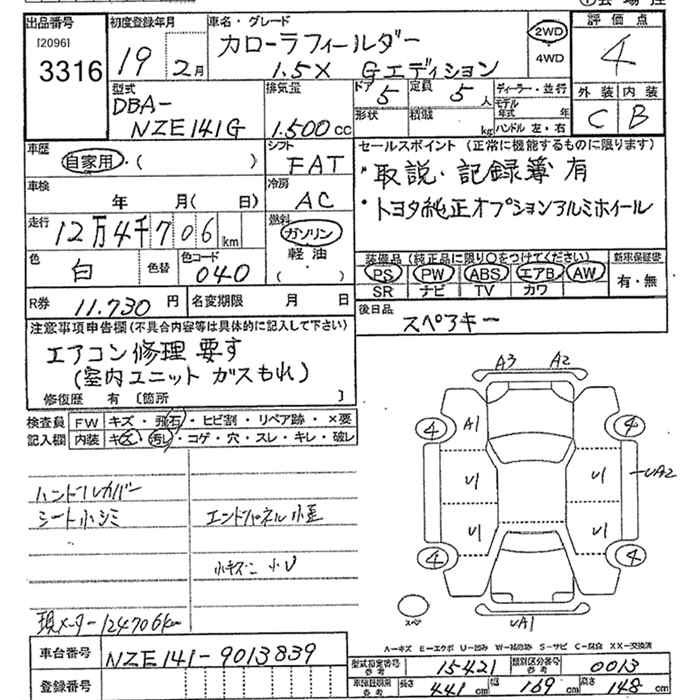 出品番号
[2096]
3316
初度登録年月
19 2月
車名・グレード
カローラフィールダー
1.5X Gエディション
2WD
4WD
評価点
4
外装 内装
C B
型式
DBA-
NZE141G
排気量
1.500cc
ドア 5
定員 5人
形状
積載 kg
ディーラー・並行
モデル年式 年
ハンドル 左・右
車歴
自家用・( )
シフト
FAT
セールスポイント (正常に機能するものに限ります)
・取説・記録簿有
・トヨタ純正オプションアルミホイール
車検
年 月( 日)
冷房
AC
走行
12万4千706km
燃料
ガソリン
軽油
( )
色 白
色替
色コード 040
装備品 (純正品に限り○をつけてください)
PS PW ABS エアB AW
SR ナビ TV カワ
新車保証書
有・無
R券 11.730円
名変期限 月 日
後日品
スペアキー
注意事項申告欄(不具合内容等は具体的に記入して下さい)
エアコン修理要す
(室内ユニット ガスもれ)
修復歴 有 [箇所 ]
検査員記入欄
FW キズ・飛石・ヒビ割・リペア跡・×要
内装 キズ・汚レ・コゲ・穴・スレ・キレ・破レ
ハンドルカバー
シート小シミ
エンドパネル小歪
小キズ 小U
現メーター124706km
A3 A2
4 A1 4
U1 U1 UA2
U1 U1
4 4
スペ UA1
A-キズ E-エクボ U-凹み W-補修跡 S-サビ C-腐食 XX-交換済
車台番号
NZE141-9013839
登録番号
型式指定番号 参考 15421
類別区分番号 参考 0013
車体諸元 参考
長さ 441cm
幅 169cm
高さ 148cm